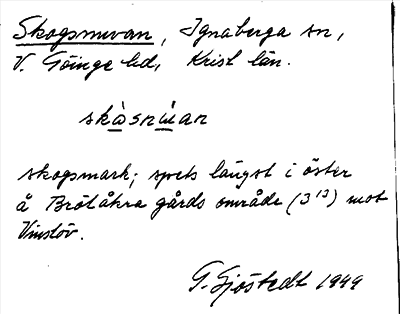 Skogsmuan, Ignaberga sn,
V. Göinge hd, Krist län.
skàsnúan
skogsmark; spets längst i öster
å Brötåkra gårds område (3¹³) mot
Vinslöv.
G. Sjöstedt 1949